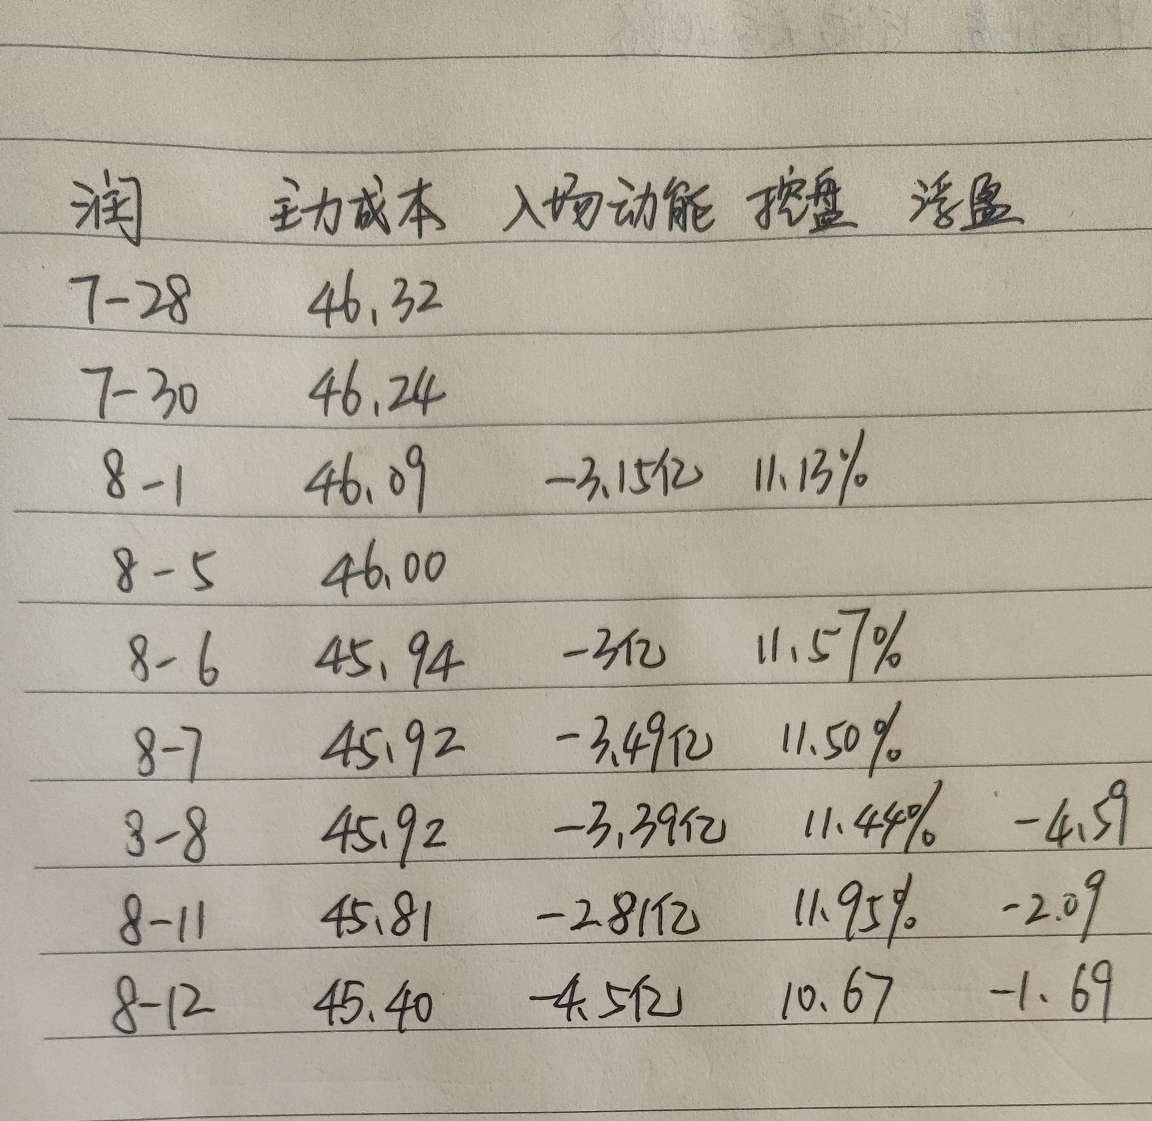 润 主力成本 入场动能 控盘 浮盈
7-28 46.32
7-30 46.24
8-1 46.09 -3.15亿 11.13%
8-5 46.00
8-6 45.94 -3亿 11.57%
8-7 45.92 -3.49亿 11.50%
8-8 45.92 -3.39亿 11.44% -4.59
8-11 45.81 -2.81亿 11.95% -2.09
8-12 45.40 -4.5亿 10.67 -1.69